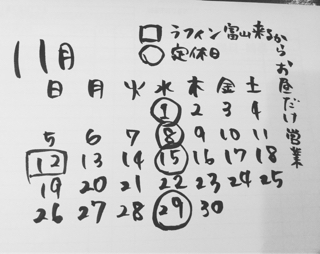 11月
□ラフィン富山来るからお昼だけ営業
○定休日
日 月 火 水 木 金 土
1 2 3 4
5 6 7 8 9 10 11
12 13 14 15 16 17 18
19 20 21 22 23 24 25
26 27 28 29 30